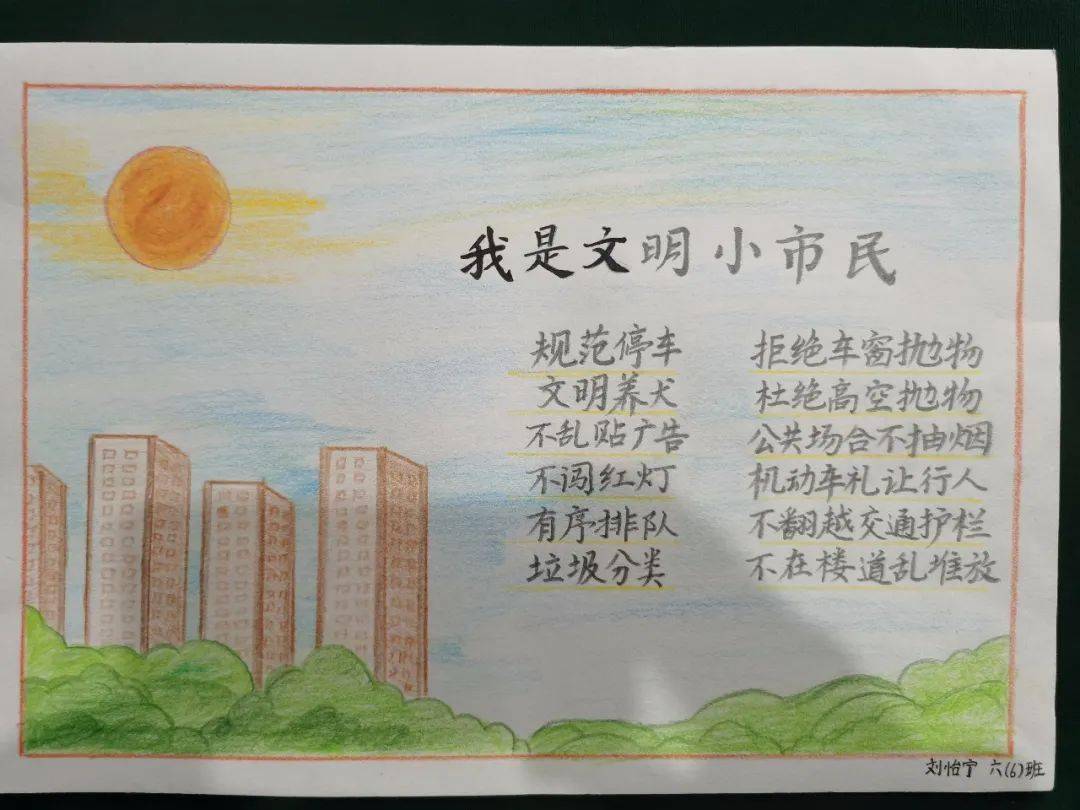 我是文明小市民
规范停车
文明养犬
不乱贴广告
不闯红灯
有序排队
垃圾分类
拒绝车窗抛物
杜绝高空抛物
公共场合不抽烟
机动车礼让行人
不翻越交通护栏
不在楼道乱堆放
刘怡宁 六(6)班